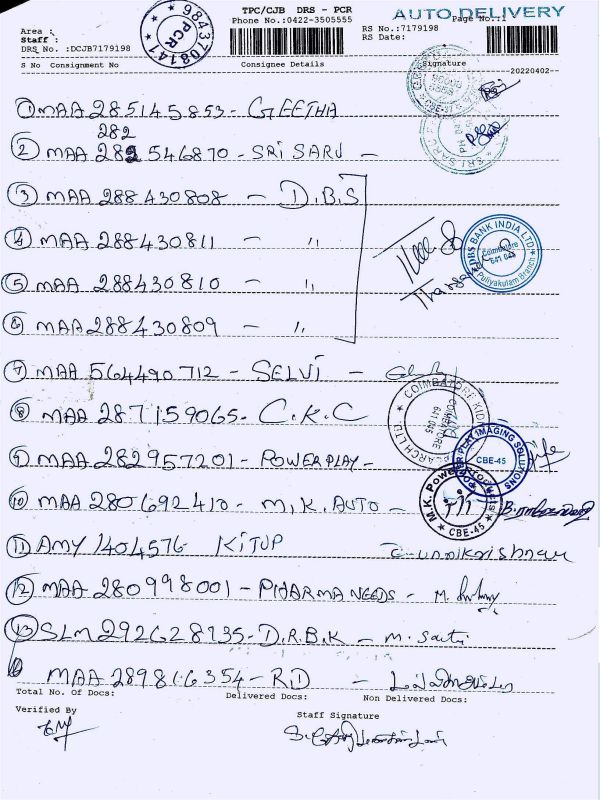 TPC/CJB DRS - PCR
AUTO DELIVERY
Phone No.:0422-3505555
Page No.:1
Area :
Staff :
DRS No. :DCJB7179198
RS No.:7179198
RS Date:
9843708141 PCR
S No Consignment No Consignee Details Signature
20220402
① MAA 285145853 - GEETHA
282
② MAA 282 546870 - SRI SARU -
③ MAA 288430808 - D.B.S
④ MAA 288430811 - 〃
⑤ MAA 288430810 - 〃
⑥ MAA 288430809 - 〃
DBS BANK INDIA LTD
Coimbatore
641 045
Puliyakulam Branch
⑦ MAA 564490712 - SELVI -
⑧ MAA 287159065 - C.K.C
COIMBATORE
641 045
⑨ MAA 282957201 - POWERPLAY -
PLAY IMAGING SOLUTIONS
CBE-45
⑩ MAA 280692410 - M.K. AUTO -
M.K. Power
CBE-45
⑪ AMY 1404576 KITUP
⑫ MAA 280998001 - PHARMA NEEDS - M.
⑬ SLM 292628935 - D.R.B.K - M.
MAA 289816354 - RD -
Total No. Of Docs: Delivered Docs: Non Delivered Docs:
Verified By
Staff Signature